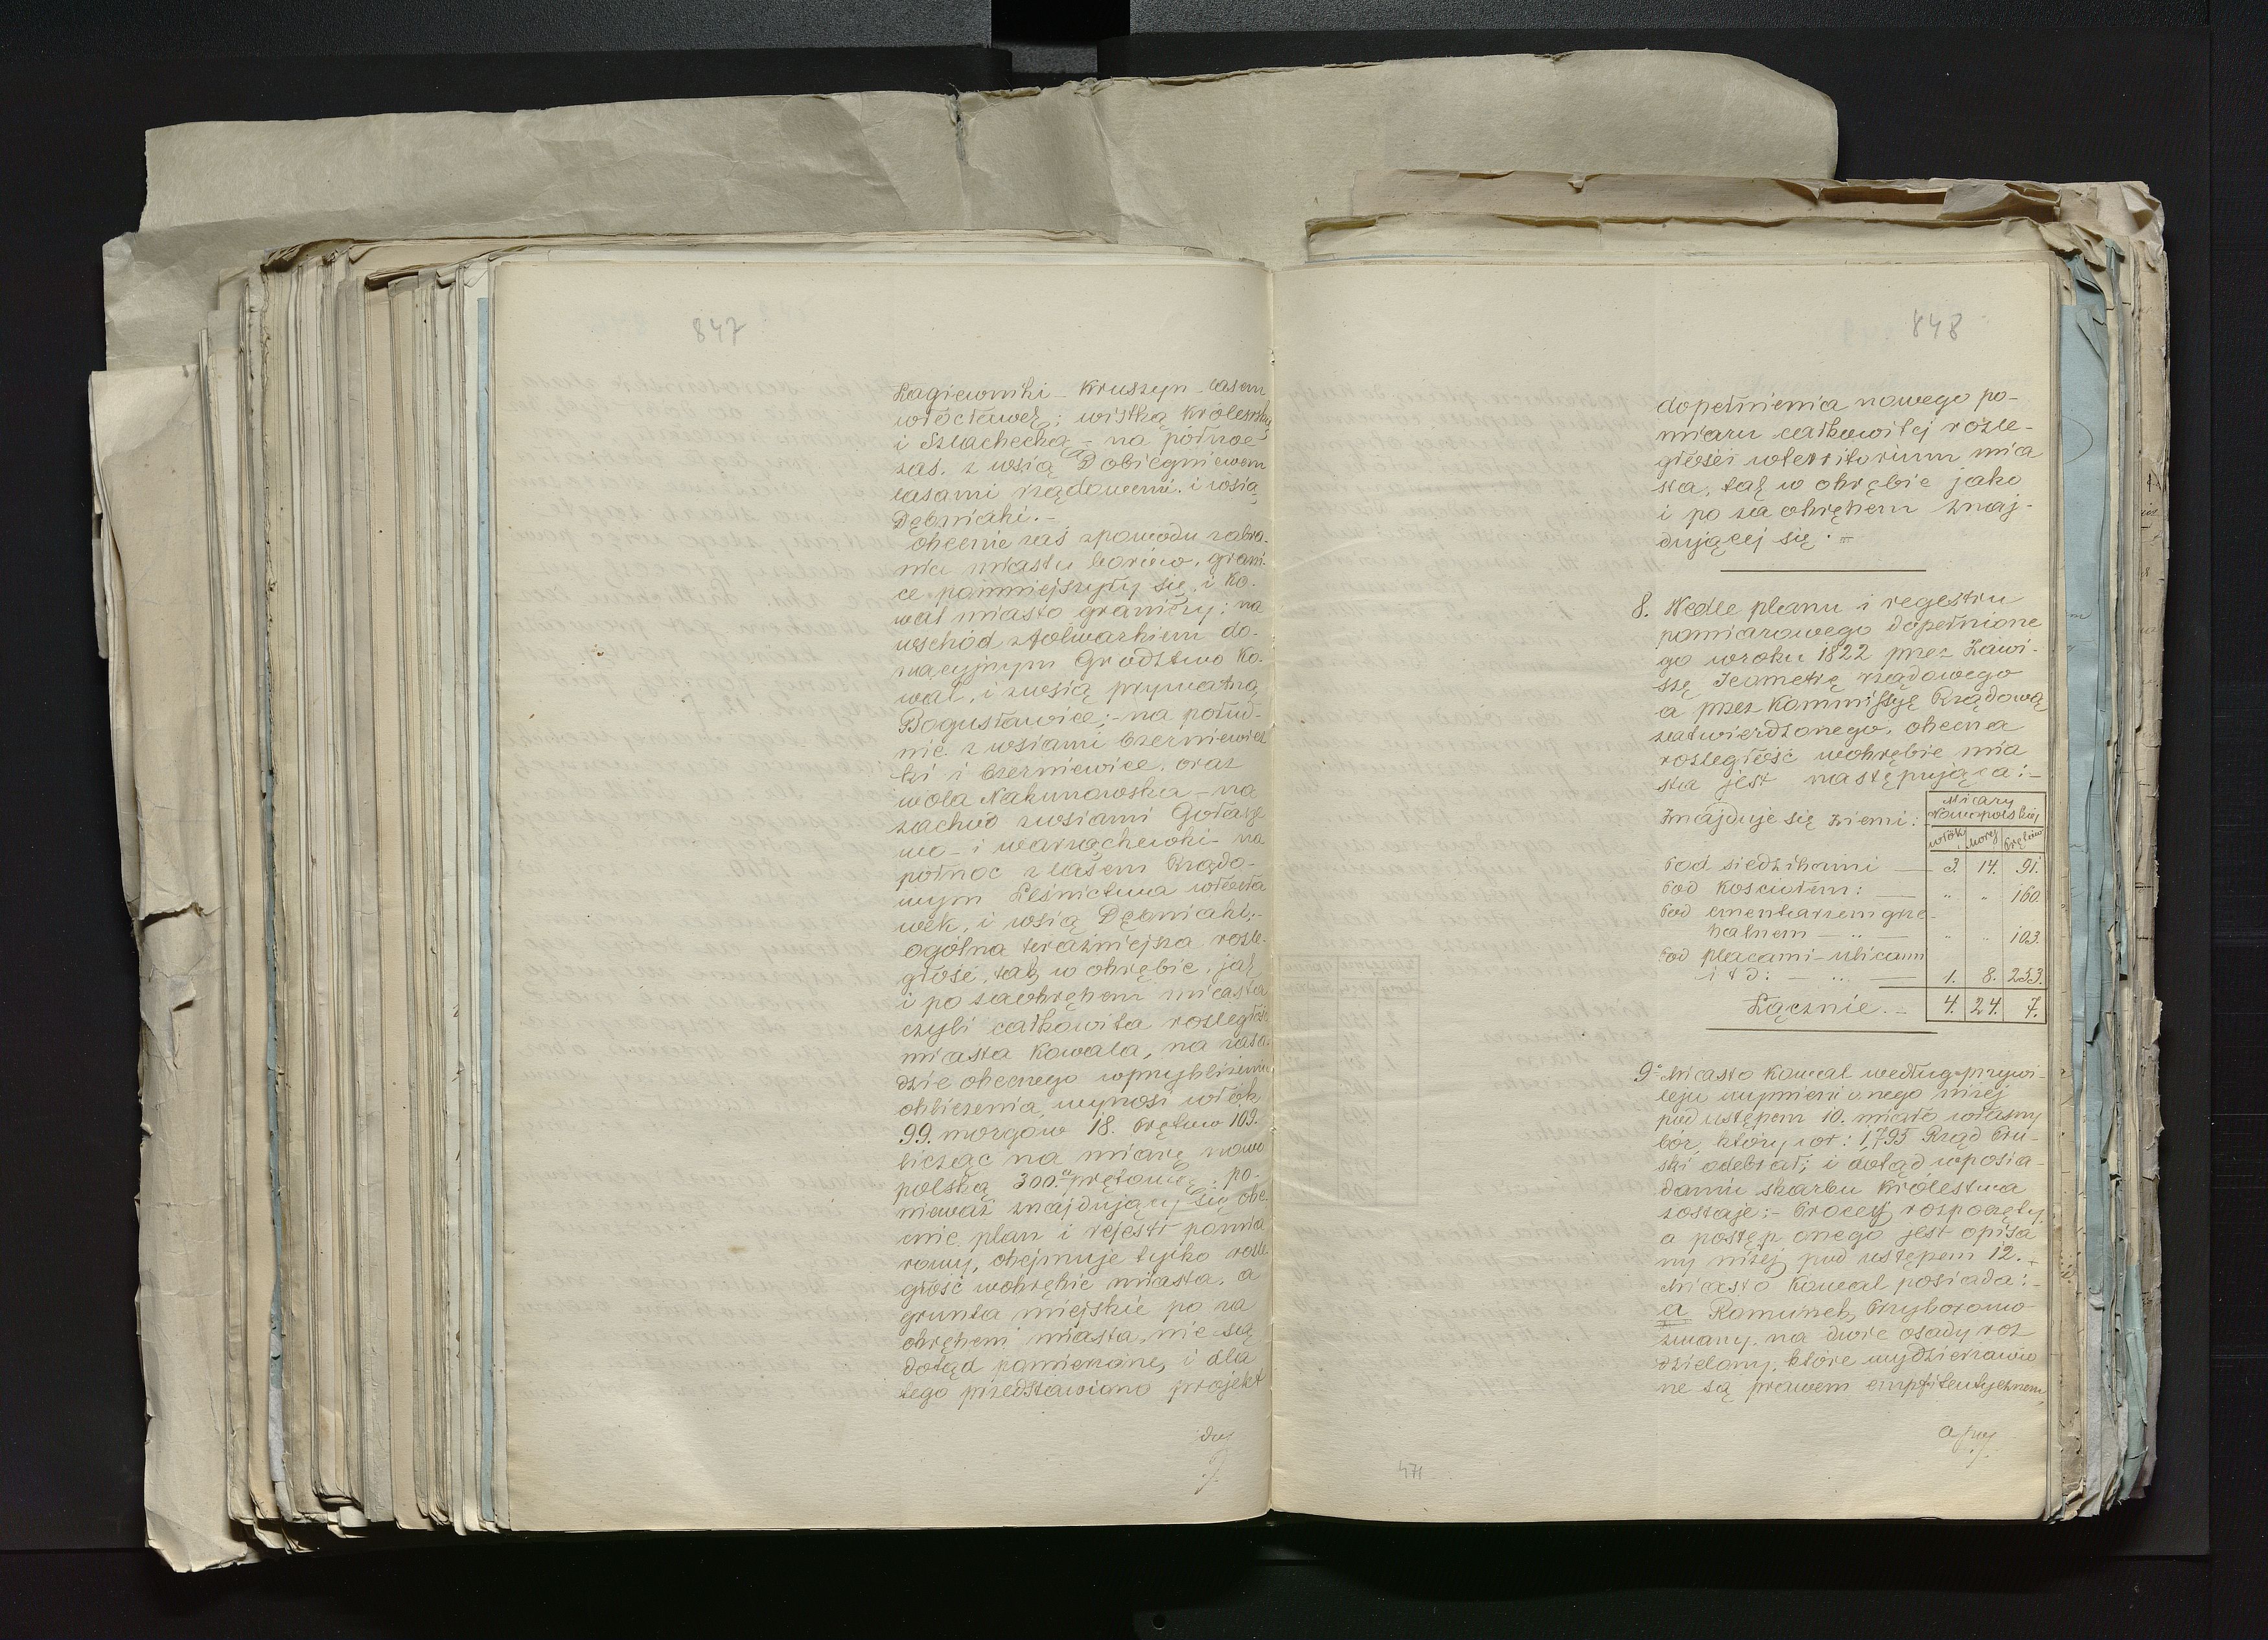 847
Łagiewniki - Kruszyn - lasem
włocławek; wistką Królewską
i Szlachecką - na północ
zaś z wsią Dobiegniewem
lasami rządowemi i wsią
Dębniaki.-
obecnie zaś zpowodu zabra-
nia miastu borów, grani-
ce pomniejszyły się, i Ko-
wal miasto graniczy: na
wschód z folwarkiem do-
nacyjnym Grodztwo Ko-
wal, i zwsią prywatną
Bogusławice;- na połud-
nie z wsiami Czerniewicz
ki i Czerniewice, oraz
wola Nakunowska - na
zachód zwsiami Gołasze
wo - i warząchewki - na
północ z lasem Rządo-
wym Leśnictwa włocła
wek, i wsią Dębniaki;-
ogólna teraźniejsza rozle-
głość, tak w obrębie, jak
i po zaobrębem miasta
czyli całkowita rozległość
miasta Kowala, na zasa-
dzie obecnego wprzybliżeniu
obliczenia wynosi włók
99. morgów 18. Prętów 103.
licząc na miarę nowo
polską 300. prętową; po-
nieważ znajdujący się obe-
cnie plan i rejestr pomia
rowy, obejmuje tylko rozle-
głość wobrębie miasta, a
grunta miejskie po za
obrębem miasta, nie są
dotąd pomierzone, i dla
tego przedstawiono projekt
848
dopełnienia nowego po-
miaru całkowitej rozle-
głości wterritorium mia
sta, tak w obrębie jako
i po za obrębem znaj-
dującej się. =
8. Wedle planu i regestru
pomiarowego dopełnione
go wroku 1822 przez Zawi-
szę Jeometrę rządowego
a przez Kommissyę Rządową
zatwierdzonego, obecna
rozległość wobrębie mia
sta jest następująca:-
Znajduje się ziemi: Miary Nowopolskiej
włók morg Prętów
Pod siedzibami — 3. 14. 91.
Pod Kościołem: — " " 160.
Pod cmentarzem grze-
balnem — " — " " 103.
Pod placami - ulicami
i t d: — " — 1. 8. 253.
Łącznie. - 4. 24. 7.
9. Miasto Kowal według przywi-
leju wymienionego niżej
pod ustępem 10. miało własny
bór, który wr: 1795 Rząd Pru-
ski odebrał; i dotąd wposia-
daniu skarbu Królestwa
zostaje:- Proces rozpoczęty
a postęp onego jest opisa
ny niżej pod ustępem 12.-
Miasto Kowal posiada:-
a Rumunek Przyborowo
zwany, na dwie osady roz
dzielony, które wydzierżawio
ne są prawem emphiteutycznem,
471